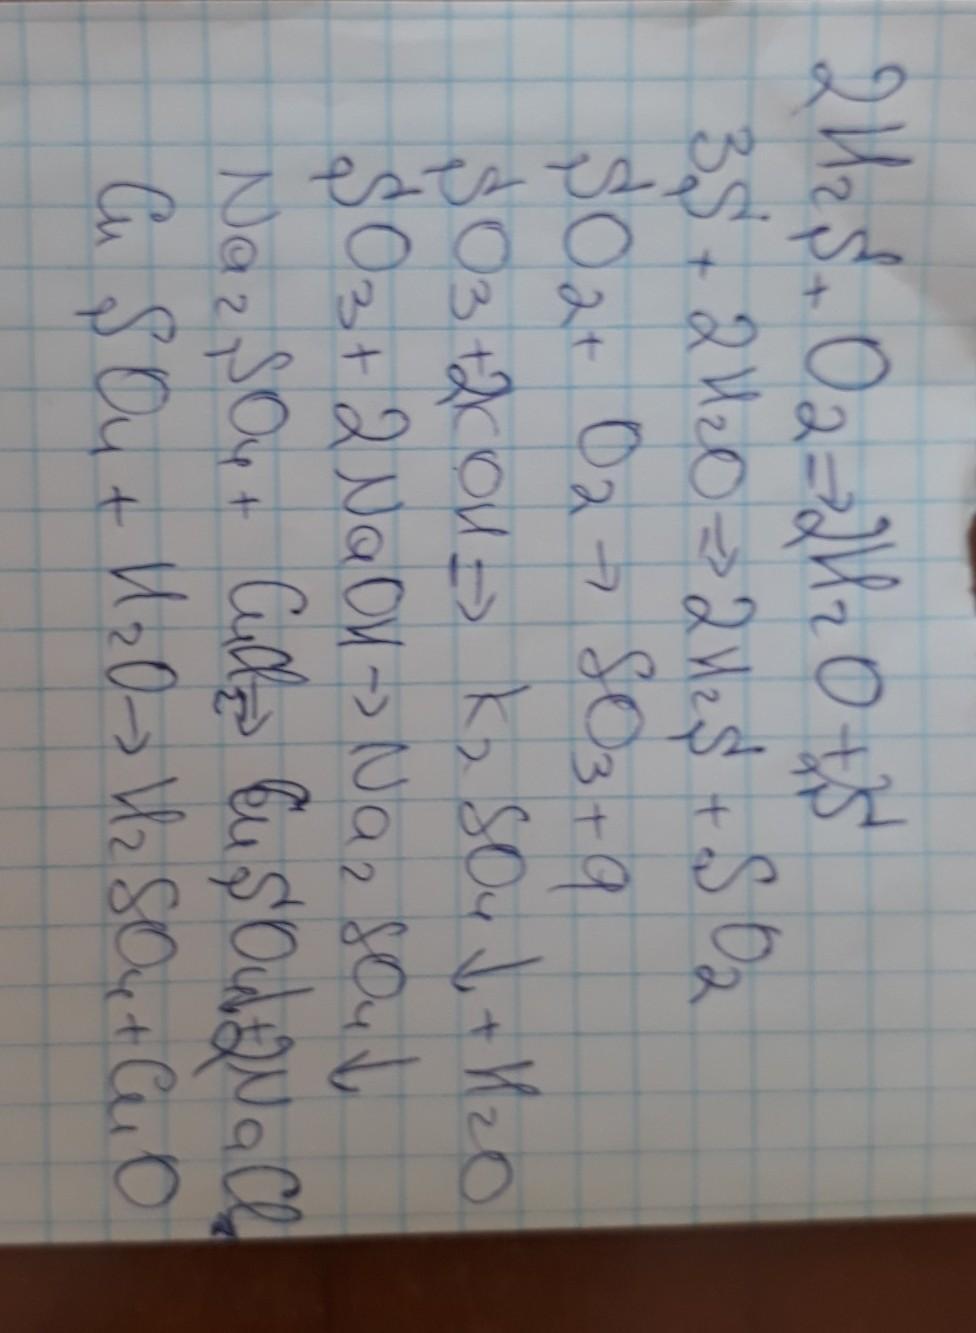 2H₂S + O₂ ⇒ 2H₂O + 2S
3S + 2H₂O ⇒ 2H₂S + SO₂
SO₂ + O₂ → SO₃ + q
SO₃ + 2KOH ⇒ K₂SO₄↓ + H₂O
SO₃ + 2NaOH → Na₂SO₄↓
Na₂SO₄ + CuCl₂ ⇒ CuSO₄↓ + 2NaCl
CuSO₄ + H₂O → H₂SO₄ + CuO